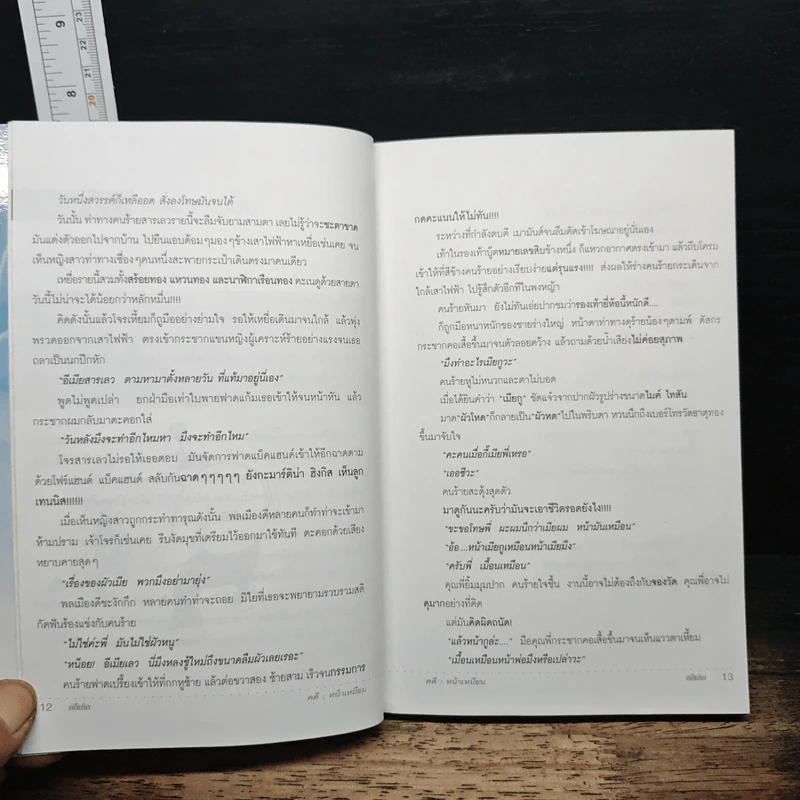 9
8
23
22
21
20
วันหนึ่งสวรรค์ก็เหลืออด สั่งลงโทษมันจนได้
วันนั้น ท่าทางคนร้ายสารเลวรายนี้จะลืมจับยามสามตา เลยไม่รู้ว่าจะชะตาขาด
มันแต่งตัวออกไปจากบ้าน ไปยืนแอบด้อมๆมองๆข้างเสาไฟฟ้าหาเหยื่อเช่นเคย จน
เห็นหญิงสาวท่าทางเชื่องๆคนหนึ่งสะพายกระเป๋าเดินตรงมาคนเดียว
เหยื่อรายนี้สวมทั้งสร้อยทอง แหวนทอง และนาฬิกาเรือนทอง คะเนดูด้วยสายตา
วันนี้ไม่น่าจะได้น้อยกว่าหลักหมื่น!!!!
คิดดังนั้นแล้วโจรเหี้ยมก็ถูมืออย่างย่ามใจ รอให้เหยื่อเดินมาจนใกล้ แล้วพุ่ง
พรวดออกจากเสาไฟฟ้า ตรงเข้ากระชากแขนหญิงผู้เคราะห์ร้ายอย่างแรงจนเธอ
ถลาเป็นนกปีกหัก
"อีเมียสารเลว ตามหามาตั้งหลายวัน ที่แท้มาอยู่นี่เอง"
พูดไม่พูดเปล่า ยกฝ่ามือเท่าใบพายฟาดแก้มเธอเข้าให้จนหน้าหัน แล้ว
กระชากผมกลับมาตะคอกใส่
"วันหลังมึงจะทำอีกไหมหา มึงจะทำอีกไหม"
โจรสารเลวไม่รอให้เธอตอบ มันจัดการฟาดแบ็คแฮนด์เข้าให้อีกฉาดตาม
ด้วยโฟร์แฮนด์ แบ็คแฮนด์ สลับกันฉาดๆๆๆๆๆ ยังกะมาร์ติน่า ฮิงกิส เห็นลูก
เทนนิส!!!!!!
เมื่อเห็นหญิงสาวถูกกระทำทารุณดังนั้น พลเมืองดีหลายคนก็ทำท่าจะเข้ามา
ห้ามปราม เจ้าโจรก็เช่นเคย รีบงัดมุขที่เตรียมไว้ออกมาใช้ทันที ตะคอกด้วยเสียง
หยาบคายสุดๆ
"เรื่องของผัวเมีย พวกมึงอย่ามายุ่ง"
พลเมืองดีชะงักกึก หลายคนทำท่าจะถอย มิใยที่เธอจะพยายามรวบรวมสติ
กัดฟันร้องแข่งกับคนร้าย
"ไม่ใช่ค่ะพี่ มันไม่ใช่ผัวหนู"
"หน้อย! อีเมียเลว นี่มึงหลงชู้ใหม่ถึงขนาดลืมผัวเลยเรอะ"
คนร้ายฟาดเปรี้ยงเข้าให้ที่กกหูซ้าย แล้วต่อขวาสอง ซ้ายสาม เร็วจนกรรมการ
12 คดีเด็ด
คดี : หน้าเหมือน
กดคะแนนให้ไม่ทัน!!!!
ระหว่างที่กำลังตบตี เมามันส์จนลืมตัดเข้าโฆษณาอยู่นั่นเอง
เท้าในรองเท้าบู๊ตหมายเลขสิบข้างหนึ่ง ก็แหวกอากาศตรงเข้ามา แล้วถีบโครม
เข้าให้ที่สีข้างคนร้ายอย่างเรียบง่ายแต่รุนแรง!!!! ส่งผลให้ร่างคนร้ายกระเด็นจาก
ใกล้เสาไฟฟ้า ไปรู้สึกตัวอีกทีในพงหญ้า
คนร้ายหันมา ยังไม่ทันเอ่ยปากชมว่ารองเท้ายี่ห้อนี้หนักดี....
ก็ถูกมือหนาหนักของชายร่างใหญ่ หน้าตาท่าทางดุร้ายน้องๆดามพ์ ดัสกร
กระชากคอเสื้อขึ้นมาจนตัวลอยคว้าง แล้วถามด้วยน้ำเสียงไม่ค่อยสุภาพ
"มึงทำอะไรเมียกูวะ"
คนร้ายหูไม่หนวกและตาไม่บอด
เมื่อได้ยินคำว่า "เมียกู" ชัดแจ๋วจากปากผัวรูปร่างขนาดไมค์ ไทสัน
มาด"ผัวโหด"ก็กลายเป็น"ผัวหด"ไปในพริบตา หวนนึกถึงเบอร์โทรวัดธาตุทอง
ขึ้นมาจับใจ
"คะคนเมื่อกี้เมียพี่เหรอ"
"เออซีวะ"
คนร้ายสะดุ้งสุดตัว
มาดูกันนะครับว่ามันจะเอาชีวิตรอดยังไง!!!!
"ขะขอโทษพี่ ผะผมนึกว่าเมียผม หน้ามันเหมือน"
"อ้อ....หน้าเมียกูเหมือนหน้าเมียมึง"
"ครับพี่ เมื้อนเหมือน"
คุณพี่ยิ้มมุมปาก คนร้ายใจชื้น งานนี้อาจไม่ต้องถึงกับจองวัด คุณพี่อาจไม่
ดุมากอย่างที่คิด
แต่มันคิดผิดถนัด!
"แล้วหน้ากูล่ะ...." มือคุณพี่กระชากคอเสื้อขึ้นมาจนเห็นแววตาเหี้ยม
"เมื้อนเหมือนหน้าพ่อมึงหรือเปล่าวะ"
คดี : หน้าเหมือน
คดีเด็ด 13